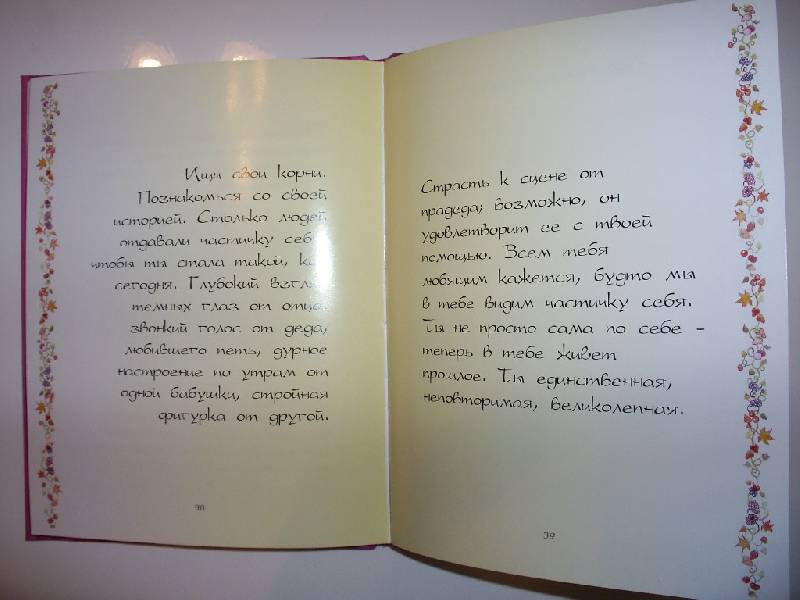 Ищи свои корни.
Познакомься со своей
историей. Столько людей
отдавали частичку себя,
чтобы ты стала такой,
сегодня. Глубокий
темных глаз от отца,
звонкий голос от деда,
любившего петь, дурное
настроение по утрам от
одной бабушки, стройная
фигурка от другой.
Страсть к сцене от
прадеда; возможно, он
удовлетворит ее с твоей
помощью. Всем тебя
любящим кажется, будто мы
в тебе видим частичку себя.
Ты не просто сама по себе -
теперь в тебе живет
прошлое. Ты единственная,
неповторимая, великолепная.
39